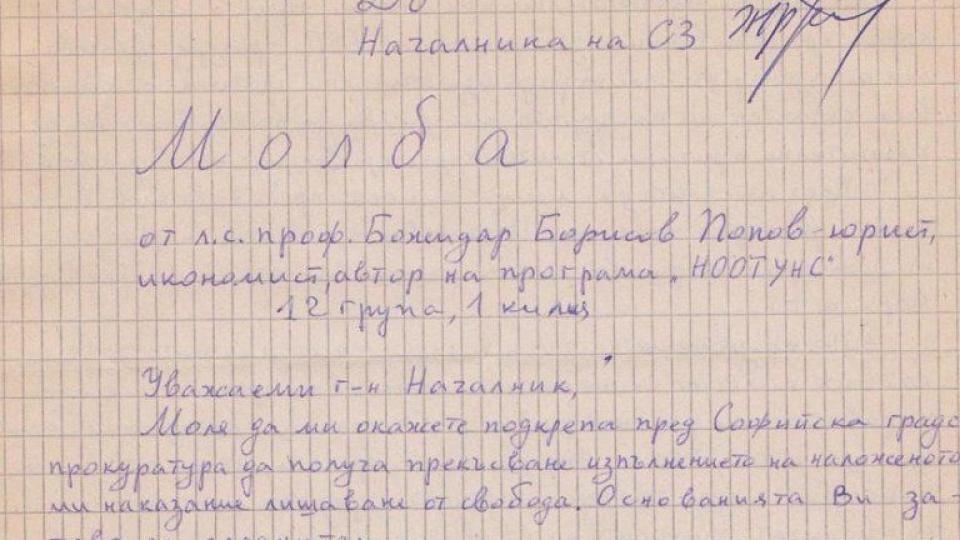 До
Началника на СЗ
Молба
от л.с. проф. Божидар Борисов Попов - юрист,
икономист, автор на програма „НООТУНС“
12 група, 1 килц
Уважаеми г-н Началник,
Моля да ми окажете подкрепа пред Софийска градс
прокуратура да получа прекъсване изпълнението на наложеното
ми наказание лишаване от свобода. Основанията Ви за-